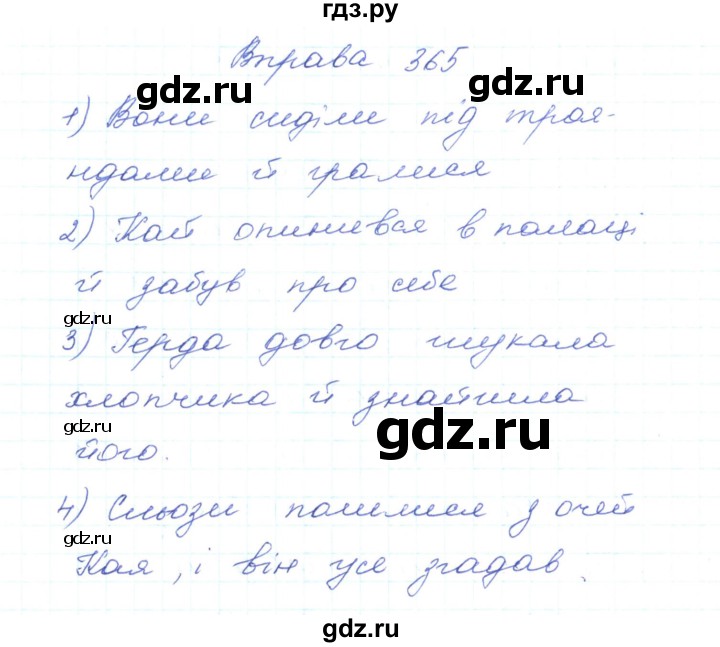 гдз.ру
Вправа 365
gdz.ru
gdz.ru
1) Вони сиділи під троя-
ндами й гралися
2) Кай опинився в палаці
й забув про себе
gdz.ru
3) Герда довго шукала
хлопчика й знайшла
gdz.ru
gdz.ru
його.
4) Сльози полилися з очей
gdz.ru
Кая, і він усе згадав.
gdz.ru